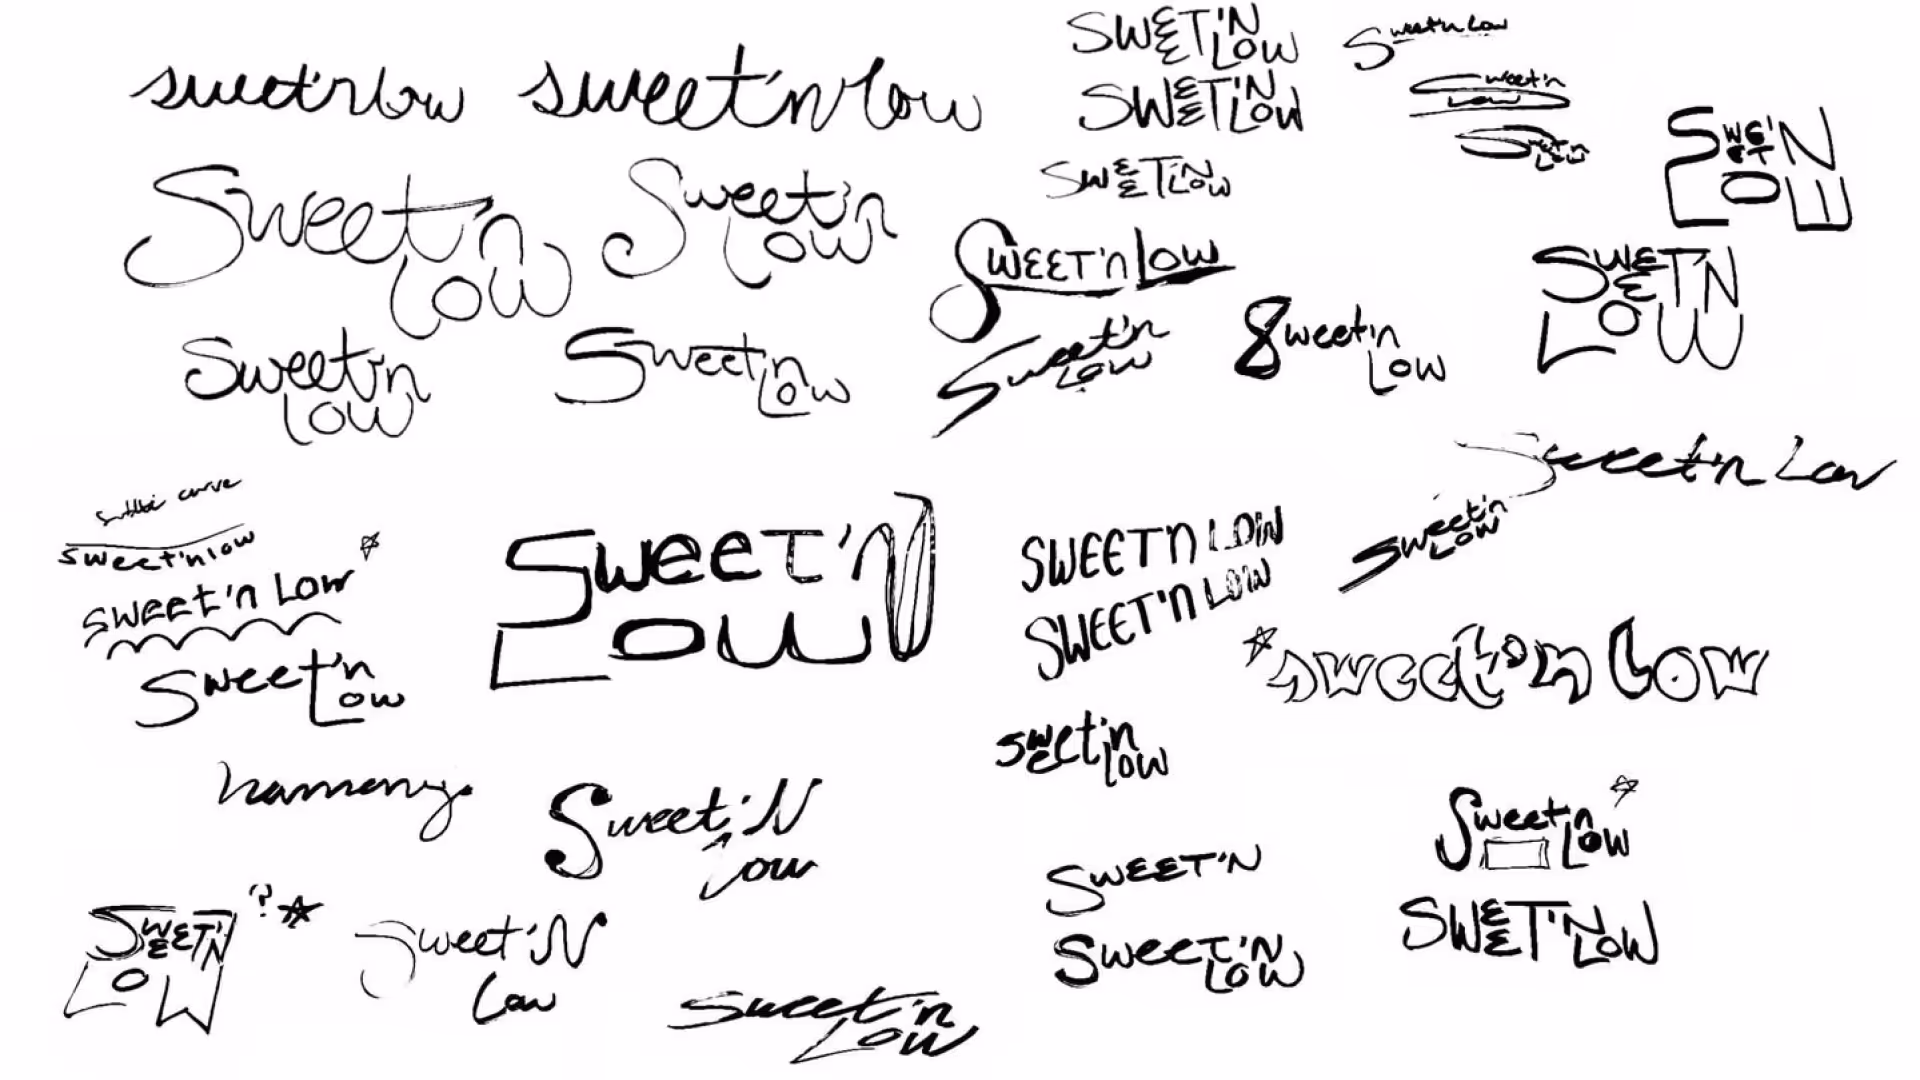 sweet'n low
sweet'n low
SWEET'N
LOW
Sweet'n Low
SWEET'N
LOW
Sweet'n
Low
SWEET'N
LOW
SWEET'N
LOW
Sweet'n
Low
Sweet'n
Low
Sweet'n
Low
SWEET'N
LOW
SWEET'n Low
SWEET'N
LOW
Sweet'n
Low
Sweet'n
Low
Sweet'n
Low
Sweet'n
Low
Sweet'n Low
curve
sweet'n low
SWEET'n Low
Sweet'n
Low
SWEET'N
LOW
SWEET'N LOW
SWEET'N LOW
Sweet'n
Low
sweet'n low
sweet'n
low
harmony
Sweet'N
Low
Sweet'n
Low
SWEET'N
SWEET'N
LOW
SWEET'N
LOW
?
SWEET'N
LOW
Sweet'N
Low
Sweet'n
Low